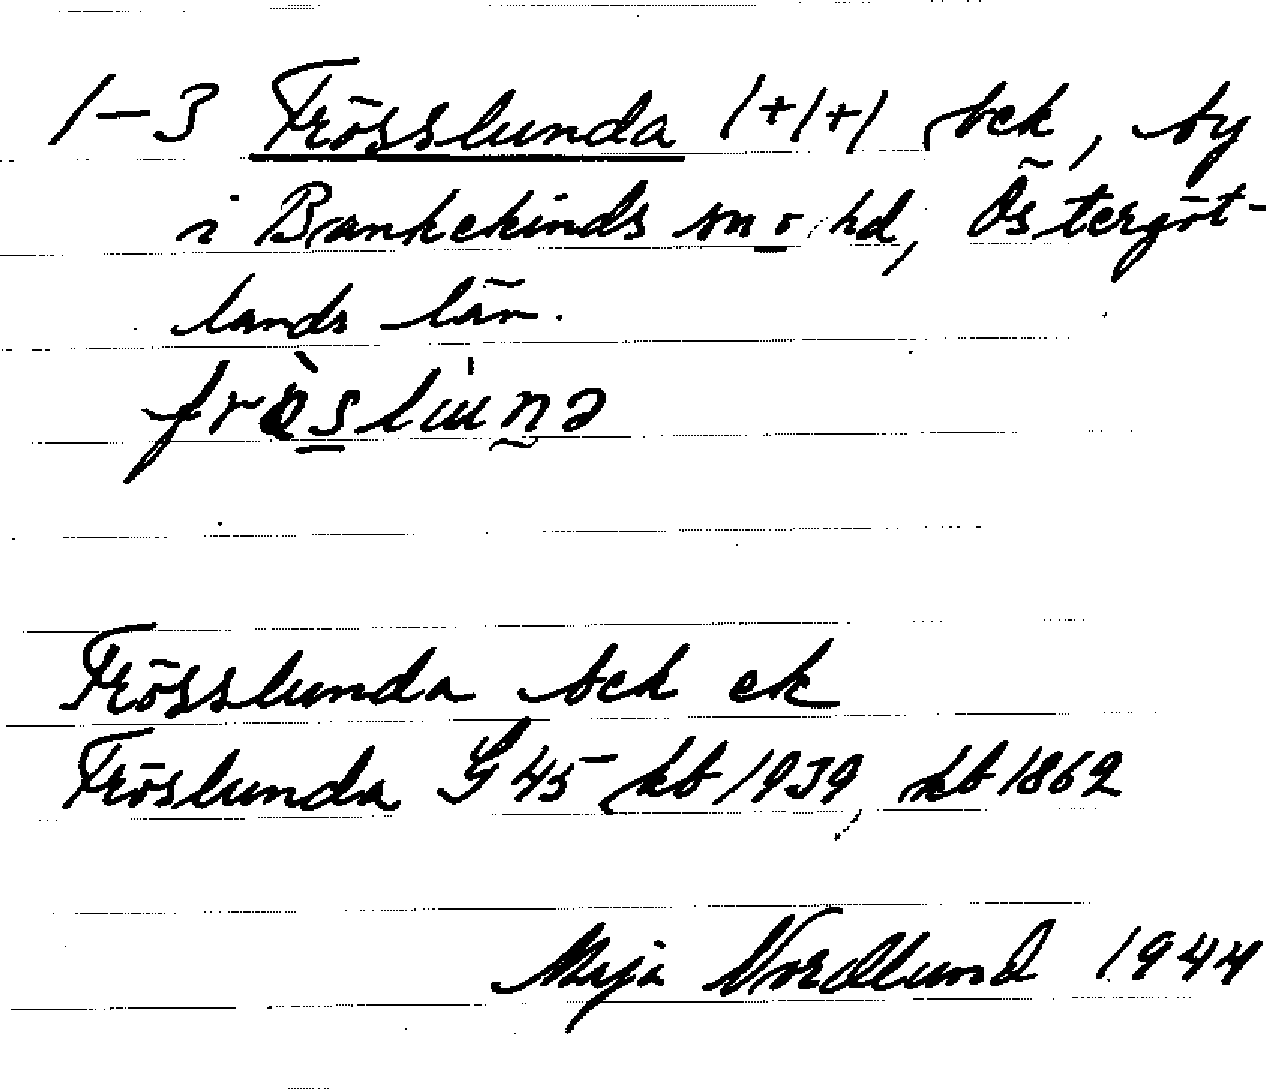 1–3 Frösslunda 1+1+1, bck, by
i Bankekinds sn o. hd, Östergöt-
lands län.
Frösslunda bck ek
Fröslunda G 45 kb 1939, kb 1862
Maja Nordlund 1944